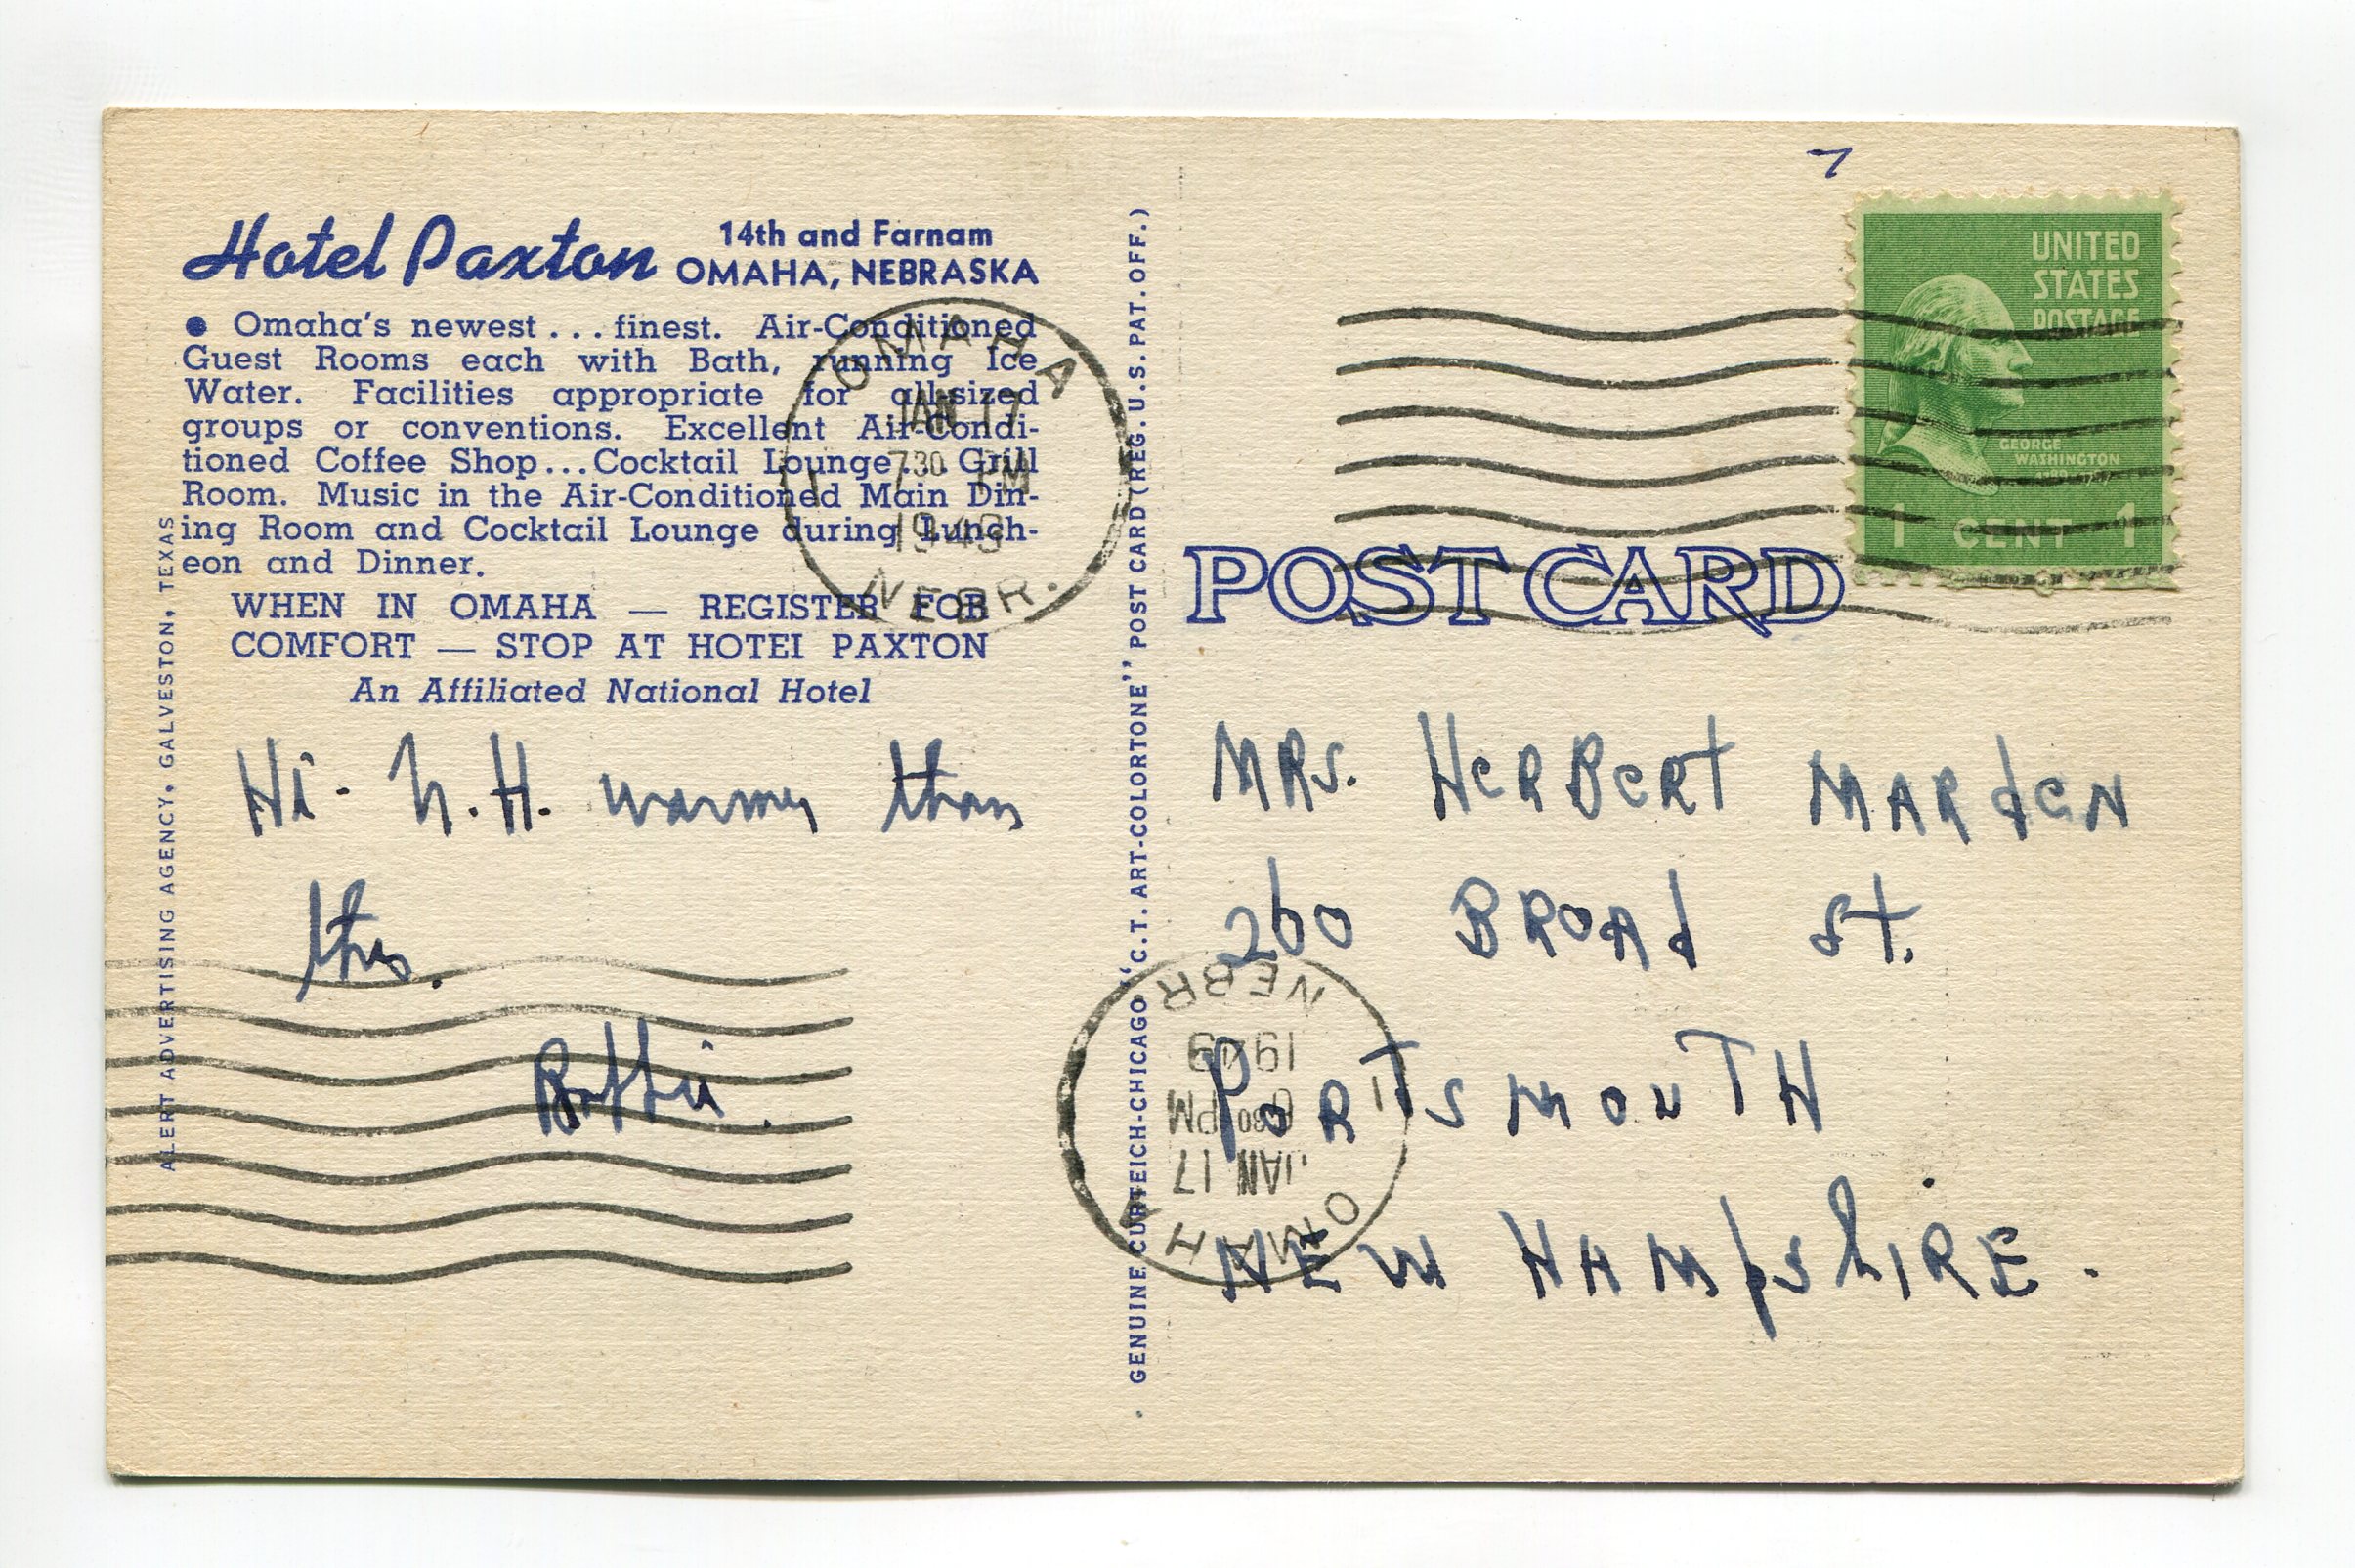 Hotel Paxton
14th and Farnam
OMAHA, NEBRASKA
● Omaha's newest . . . finest. Air-Conditioned
Guest Rooms each with Bath, running Ice
Water. Facilities appropriate for all-sized
groups or conventions. Excellent Air-Condi-
tioned Coffee Shop...Cocktail Lounge... Grill
Room. Music in the Air-Conditioned Main Din-
ing Room and Cocktail Lounge during Lunch-
eon and Dinner.
WHEN IN OMAHA — REGISTER FOR
COMFORT — STOP AT HOTEL PAXTON
An Affiliated National Hotel
OMAHA
JAN 17
7 30 PM
1949
NEBR.
Hi - N.H. warmer than
this.
ALERT ADVERTISING AGENCY, GALVESTON, TEXAS
GENUINE CURTEICH-CHICAGO "C.T. ART-COLORTONE" POST CARD (REG. U.S. PAT. OFF.)
7
UNITED
STATES
POSTAGE
GEORGE
WASHINGTON
1 CENT 1
POST CARD
MRS. HERBERT MARdEN
260 BROAd St.
PORTSMOUTH
NEW HAMpShIRE.
OMAHA
JAN 17
30 PM
1949
NEBR